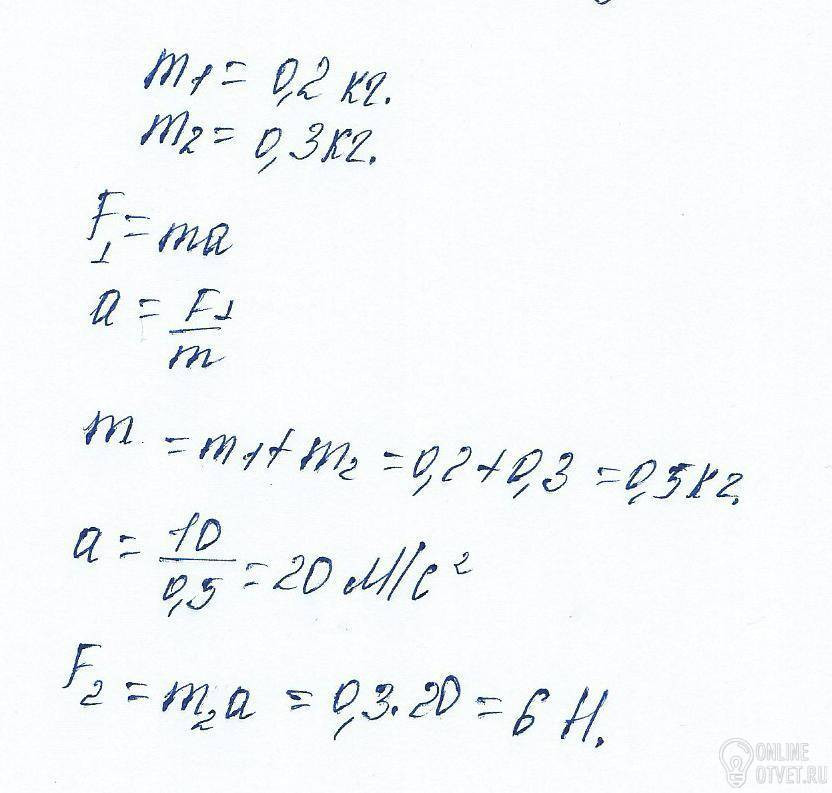 m1 = 0,2 кг.
m2 = 0,3 кг.
F1 = ma
a = F1/m
m = m1 + m2 = 0,2 + 0,3 = 0,5 кг.
a = 10/0,5 = 20 м/с²
F2 = m2a = 0,3·20 = 6 Н.
ONLINE
OTVET.RU